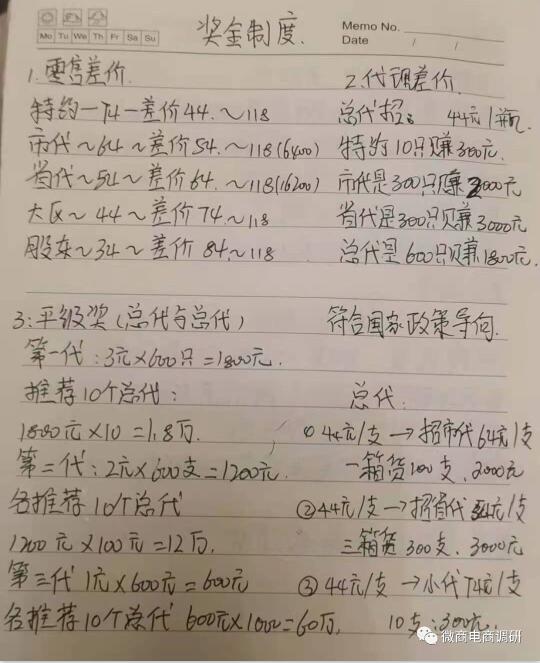 奖金制度.
Memo No.
Date / /
Mo Tu We Th Fr Sa Su
1.零售差价.
特约一74一差价44.~118
市代~64~差价54.~118(6400)
省代~54~差价64.~118(16200)
大区~44~差价74.~118
股东~34~差价84.~118
2.代理差价.
总代招: 44元/瓶.
特约10只赚300元.
市代是300只赚2000元
省代是300只赚3000元
总代是600只赚1800元.
3:平级奖(总代与总代) 符合国家政策导向.
第一代:3元×600只=1800元.
推荐10个总代:
1800元×10=1.8万.
第二代:2元×600支=1200元.
各推荐10个总代
1200元×100元=12万.
第三代1元×600元=600元
各推荐10个总代 600元×1000=60万.
总代:
①44元/支→招市代64元/支
一箱货100支.2000元
②44元/支→招省代54元/支
三箱货300支.3000元
③44元/支→小代74元/支
10支:300元.
微商电商调研